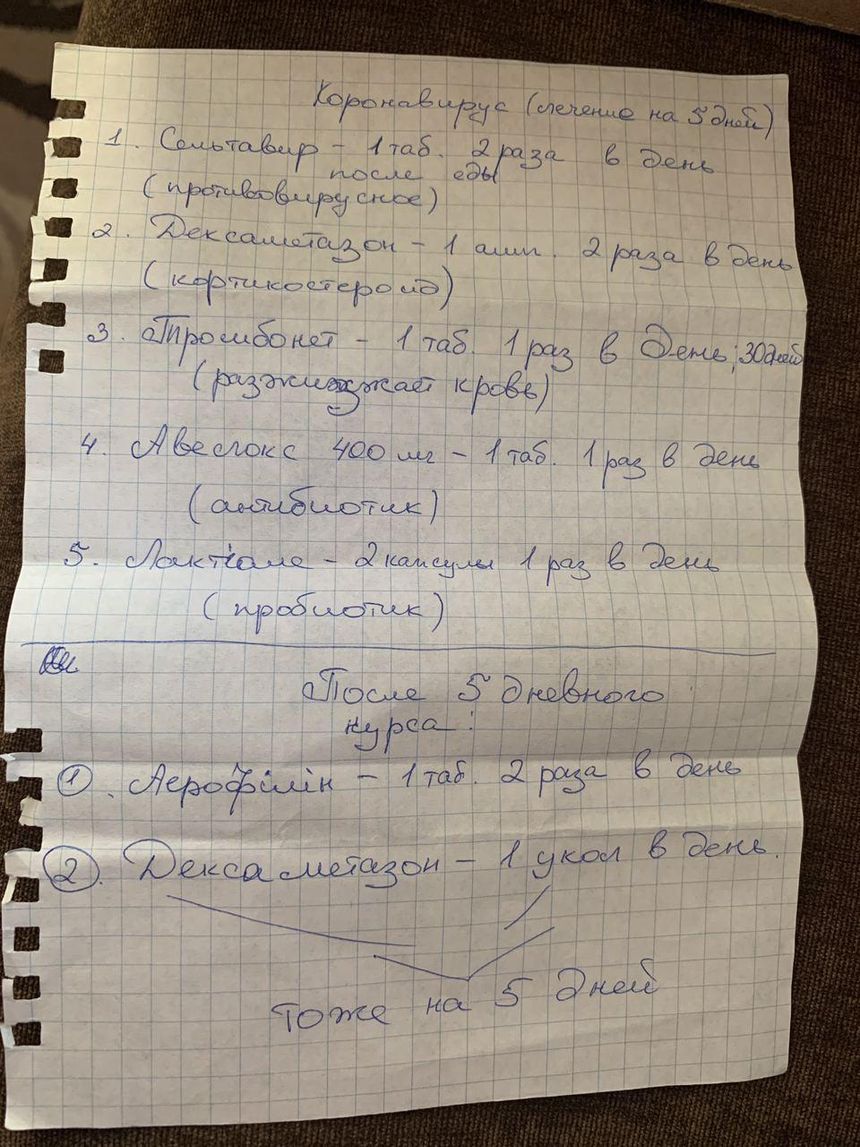 Коронавирус (лечение на 5 дней)
1. Сельтавир - 1 таб. 2 раза в день
после еды
(противовирусное)
2. Дексаметазон - 1 амп. 2 раза в день
(кортикостероид)
3. Тромбонет - 1 таб. 1 раз в день; 30 дней
(разжижает кровь)
4. Авеслокс 400 мг - 1 таб. 1 раз в день
(антибиотик)
5. Лактіале - 2 капсулы 1 раз в день
(пробиотик)
После 5 дневного
курса:
1. Аерофілін - 1 таб. 2 раза в день
2. Дексаметазон - 1 укол в день.
тоже на 5 дней